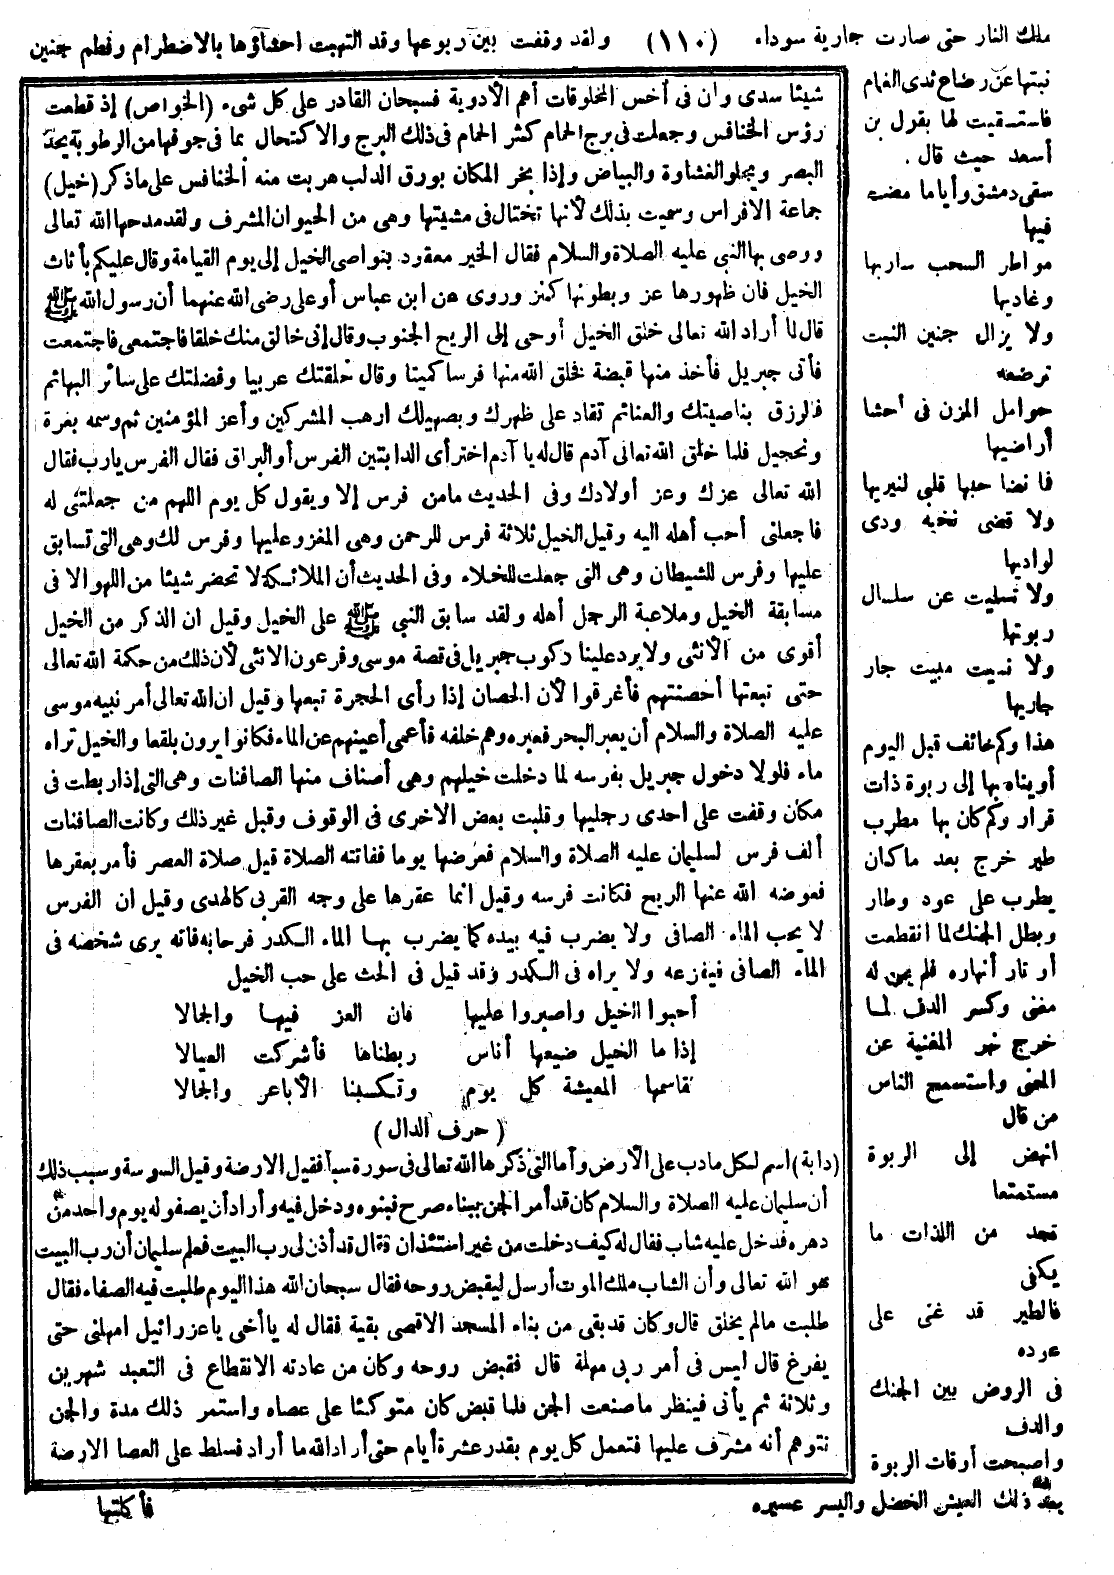 ملك النار حتى صارت جارية سوداء . (١١٠) ولقد وقفت بين ربوعها وقد التهبت احشاؤها بالاضطرام وفطم جنين
نبتها عن رضاع ثدى الغمام
فاستسقيت لها بقول بن
أسعد حيث قال .
سقى دمشق وأياما مضت
فيها
مواطر السحب ساريها
وغاديها
ولا يزال جنين النبت
ترضعه
حوامل المزن فى أحشا
أراضيها
فما نضا حبها قلبى لنيربها
ولا قضى نحبه ودى
لواديها
ولا تسليت عن سلسال
ربوتها
ولا نسيت مبيت جار
جاريها
هذا وكم خائف قبل اليوم
أويناه بها إلى ربوة ذات
قرار وكم كان بها مطرب
طير خرج بعد ما كان
يطرب على عود وطار
وبطل الجنك لما انقطعت
أوتار أنهاره فلم يبق له
مغنى وكسر الدف لما
خرج نهر المغنية عن
المعنى واستسمج الناس
من قال
انهض إلى الربوة
مستمتعا
تجد من اللذات ما
يكفى
فالطير قد غنى على
عوده
فى الروض بين الجنك
والدف
واصبحت أوقات الربوة
بعد ذلك العيش الخضل واليسر عسيره
شيئا سدى وان فى أخس المخلوقات أهم الأدوية فسبحان القادر على كل شىء (الخواص) إذ قطعت
رؤس الخنافس وجعلت فى برج الحمام كثر الحمام فى ذلك البرج والاكتحال بما فى جوفها من الرطوبة يحد
البصر ويجلو الغشاوة والبياض وإذا بخر المكان بورق الدلب هربت منه الخنافس على ماذكر (خيل)
جماعة الافراس وسميت بذلك لأنها تختال فى مشيتها وهى من الحيوان المشرف ولقد مدحها الله تعالى
ووصى بها النبى عليه الصلاة والسلام فقال الخير معقود بنواصى الخيل إلى يوم القيامة وقال عليكم بأناث
الخيل فان ظهورها عز وبطونها كنز وروى عن ابن عباس أو على رضى الله عنهما أن رسول الله ﷺ
قال لما أراد الله تعالى خلق الخيل أوحى إلى الريح الجنوب وقال إنى خالق منك خلقا فاجتمعى فاجتمعت
فأتى جبريل فأخذ منها قبضة فخلق الله منها فرسا كميتا وقال خلقتك عربيا وفضلتك على سائر البهائم
فالرزق بناصيتك والغنائم تقاد على ظهرك وبصهيلك ارهب المشركين وأعز المؤمنين ثم وسمه بغرة
وتحجيل فلما خلق الله تعالى آدم قال له يا آدم اختر أى الدابتين الفرس أو البراق فقال الفرس يارب فقال
الله تعالى عزك وعز أولادك وفى الحديث مامن فرس إلا ويقول كل يوم اللهم من جعلتنى له
فاجعلنى أحب أهله اليه وقيل الخيل ثلاثة فرس للرحمن وهى المغزو عليها وفرس لك وهى التى تسابق
عليها وفرس للشيطان وهى التى جعلت للخيلاء وفى الحديث أن الملائكة لا تحضر شيئا من اللهو الا فى
مسابقة الخيل وملاعبة الرجل أهله ولقد سابق النبى ﷺ على الخيل وقيل ان الذكر من الخيل
أقوى من الأنثى ولا يرد علينا ركوب جبريل فى قصة موسى وفرعون الانثى لأن ذلك من حكمة الله تعالى
حتى تبعتها أحصنتهم فأغرقوا لأن الحصان إذا رأى الحجرة تبعها وقيل ان الله تعالى أمر نبيه موسى
عليه الصلاة والسلام أن يعبر البحر فعبره وهم خلفه فأعمى أعينهم عن الماء فكانوا يرون بلقعا والخيل تراه
ماء فلولا دخول جبريل بفرسه لما دخلت خيلهم وهى أصناف منها الصافنات وهى التى إذا ربطت فى
مكان وقفت على احدى رجليها وقلبت بعض الاخرى فى الوقوف وقيل غير ذلك وكانت الصافنات
ألف فرس لسليمان عليه الصلاة والسلام فعرضها يوما ففاتته الصلاة قيل صلاة العصر فأمر بعقرها
فعوضه الله عنها الريح فكانت فرسه وقيل انما عقرها على وجه القربى كالهدى وقيل ان الفرس
لا يحب الماء الصافى ولا يضرب فيه بيده كما يضرب بها الماء الكدر فرحا به فانه يرى شخصه فى
الماء الصافى فيفزعه ولا يراه فى الكدر وقد قيل فى الحث على حب الخيل
أحبوا الخيل واصبروا عليها فان العز فيها والجمالا
إذا ما الخيل ضيعها أناس ربطناها فأشركت العيالا
نقاسمها المعيشة كل يوم وتكسبنا الأباعر والجمالا
( حرف الدال )
(دابة) اسم لكل مادب على الأرض وأما التى ذكرها الله تعالى فى سورة سبأ فقيل الارضة وقيل السوسة وسبب ذلك
أن سليمان عليه الصلاة والسلام كان قد أمر الجن ببناء صرح فبنوه ودخل فيه وأراد أن يصفو له يوم واحد من
دهره فدخل عليه شاب فقال له كيف دخلت من غير استئذان فقال قد أذن لى رب البيت فعلم سليمان أن رب البيت
هو الله تعالى وأن الشاب ملك الموت أرسل ليقبض روحه فقال سبحان الله هذا اليوم طلبت فيه الصفاء فقال
طلبت مالم يخلق قال وكان قد بقى من بناء المسجد الاقصى بقية فقال له يا أخى يا عزرائيل امهلنى حتى
يفرغ قال ليس فى أمر ربى مهلة قال فقبض روحه وكان من عادته الانقطاع فى التعبد شهرين
وثلاثة ثم يأتى فينظر ما صنعت الجن فلما قبض كان متوكئا على عصاه واستمر ذلك مدة والجن
تتوهم أنه مشرف عليها فتعمل كل يوم بقدر عشرة أيام حتى أراد الله ما أراد فسلط على العصا الارضة
فأكلتها